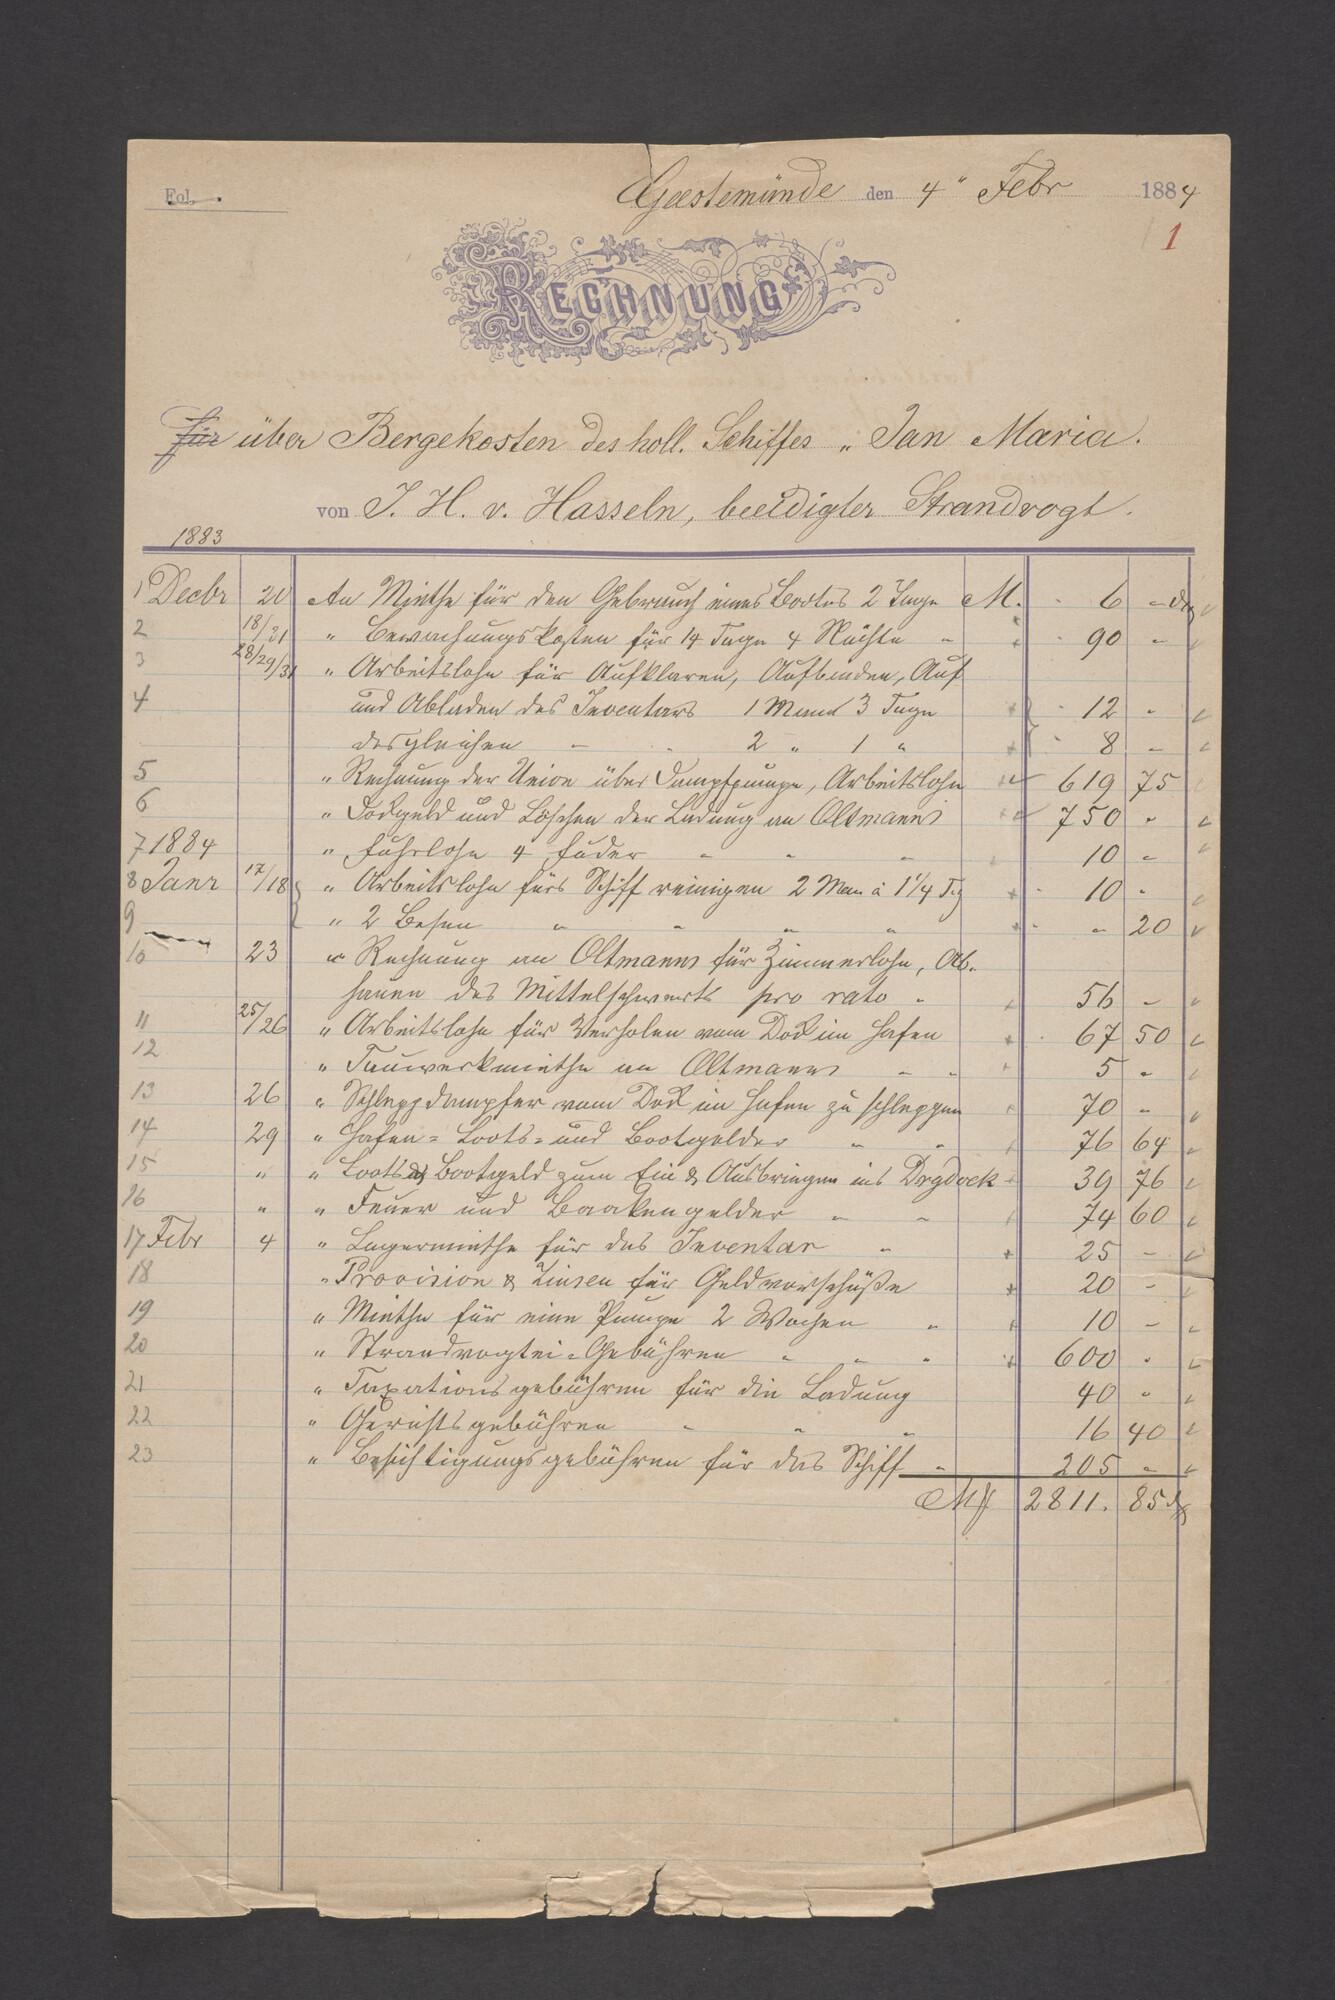 Fol.
Geestemünde den 4" Febr 1884
1
RECHNUNG
für über Bergekosten des holl. Schiffes „Jan Maria.
von J. H. v. Hasseln, beeidigter Strandvogt.
1883
1 Decbr 20 An Miethe für den Gebrauch eines Bootes 2 Tage M. 6 -
2 18/21 " Bewachungskosten für 14 Tage 4 Nächte - 90 -
3 28/29/31 " Arbeitslohn für Aufklaren, Aufbinden, Auf
4 und Abladen des Inventars 1 Mann 3 Tage 12 -
desgleichen - - 2 " 1 " 8 -
5 " Rechnung der Union über Dampfpumpe, Arbeitslohn 619 75
6 " Dockgeld und Löschen der Ladung an Oltmanns 750 -
7 1884 " Fuhrlohn 4 Fuder - - - 10 -
8 Janr 17/18 " Arbeitslohn fürs Schiff reinigen 2 Man à 1 1/4 Tg 10 -
9 " 2 Besen - - - - - 20
10 23 " Rechnung an Oltmanns für Zimmerlohn, Ab-
hauen des Mittelschwerts pro rato - 56 -
11 25/26 " Arbeitslohn für Verholen vom Dock im Hafen 67 50
12 " Tauwerkmiethe an Oltmanns - - 5 -
13 26 " Schleppdampfer vom Dock im Hafen zu schleppen 70 -
14 29 " Hafen- Loots- und Bootgelder - - 76 64
15 " " Loots & Bootgeld zum Ein & Ausbringen ins Drydock 39 76
16 " " Feuer und Baakengelder - - 74 60
17 Febr 4 " Lagermiethe für das Inventar - 25 -
18 " Provision & Zinsen für Geldvorschüße 20 -
19 " Miethe für eine Pumpe 2 Wochen - 10 -
20 " Strandvogtei-Gebühren - - - 600 -
21 " Taxationsgebühren für die Ladung 40 -
22 " Gerichtsgebühren - - - 16 40
23 " Besichtigungsgebühren für das Schiff - 205 -
M 2811. 85